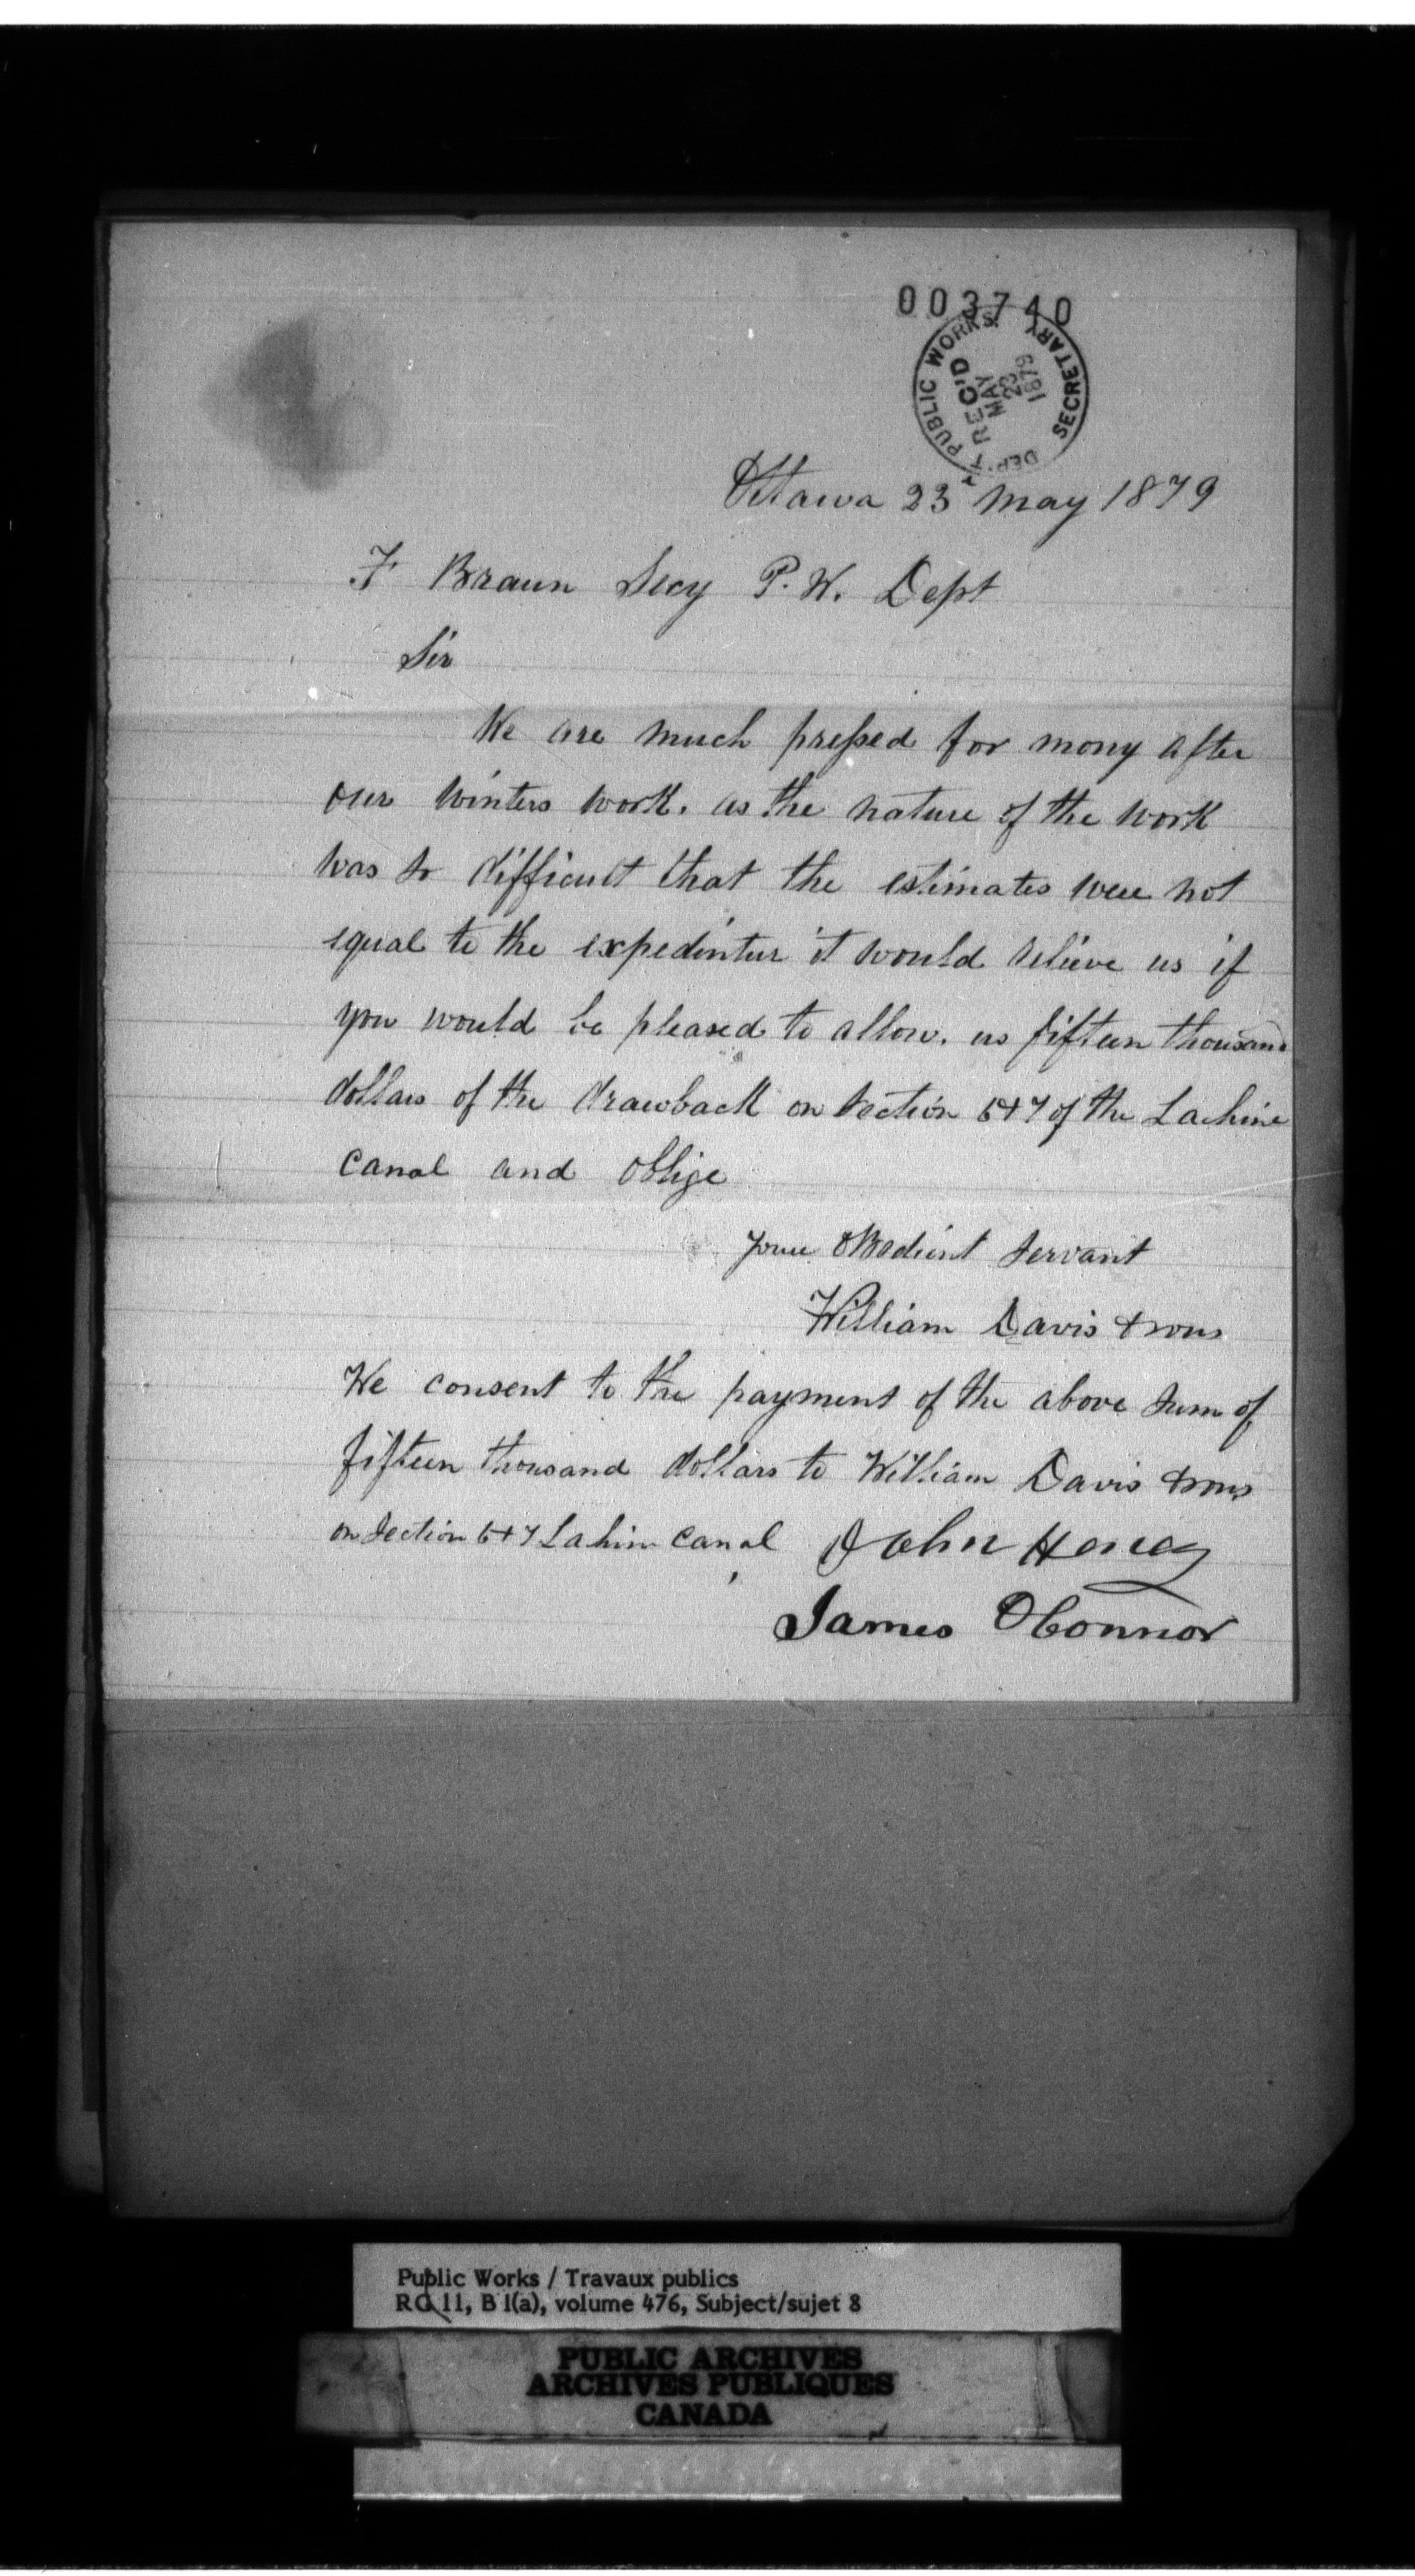 003740
DEPT PUBLIC WORKS. SECRETARY
REC'D
MAY
23
1879
Ottawa 23 May 1879
F Braun Secy P. W. Dept
Sir
We are much pressed for mony after
our winters work. as the nature of the work
was so difficult that the estimates were not
equal to the expedintur it would relieve us if
you would be pleased to allow. us fifteen thousand
dollars of the drawback on section 6+7 of the Lachine
canal and oblige
Your Obedient Servant
William Davis & sons
We consent to the payment of the above sum of
fifteen thousand dollars to William Davis & sons
on Section 6+7 Lahine canal John Honey
James OConnor
Public Works / Travaux publics
RG 11, B 1(a), volume 476, Subject/sujet 8
PUBLIC ARCHIVES
ARCHIVES PUBLIQUES
CANADA